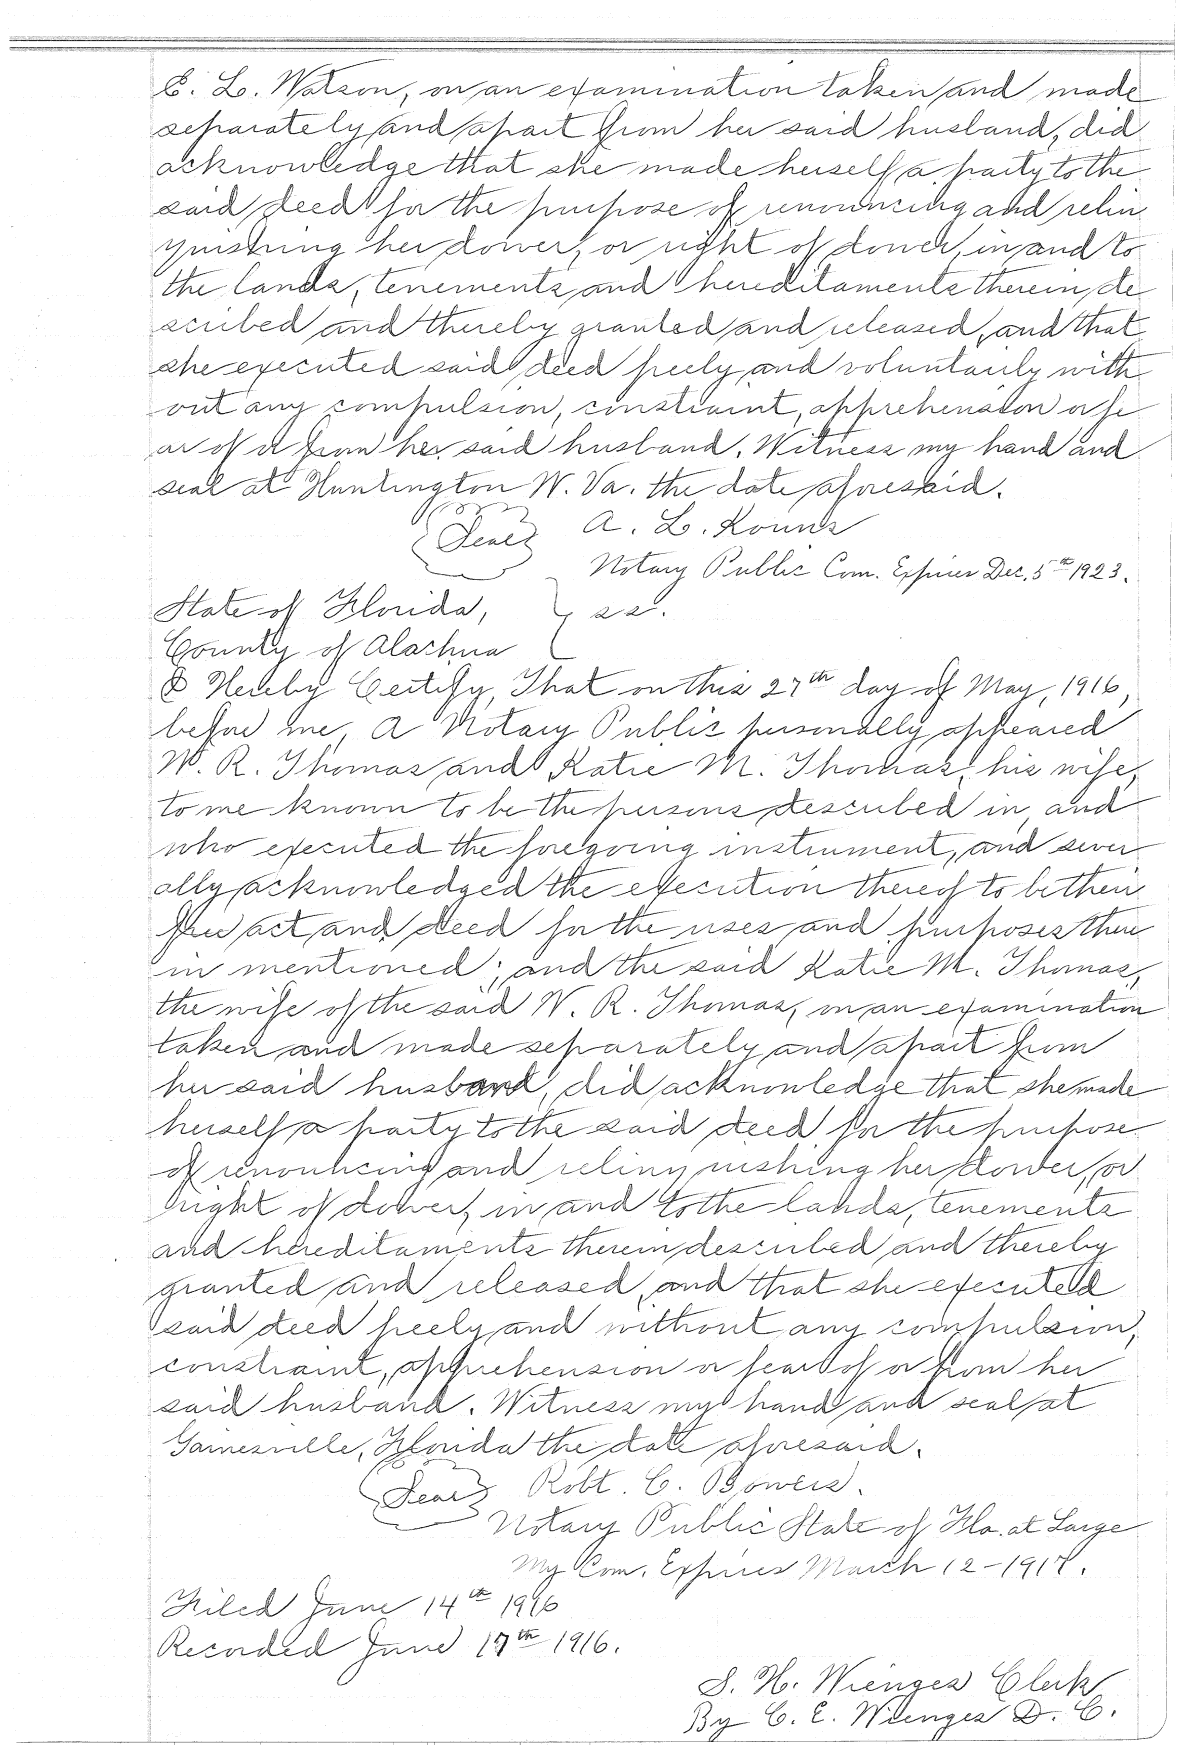 E. L. Watson, on an examination taken and made
separately and apart from her said husband, did
acknowledge that she made herself a party to the
said deed for the purpose of renouncing and relin
quishing her dower, or right of dower, in and to
the lands, tenements and hereditaments therein de
scribed and thereby granted and released, and that
she executed said deed freely and voluntarily with
out any compulsion, constraint, apprehension or fe
ar of or from her said husband. Witness my hand and
seal at Huntington W. Va. the date aforesaid.
Seal A. L. Kouns
Notary Public Com. Expires Dec. 5th 1923.
State of Florida, } ss.
County of Alachua
I Hereby Certify, That on this 27th day of May, 1916,
before me, A Notary Public personally appeared
W. R. Thomas and Katie M. Thomas, his wife,
to me known to be the persons described in, and
who executed the foregoing instrument, and sever
ally acknowledged the execution thereof to be their
free act and deed for the uses and purposes there
in mentioned; and the said Katie M. Thomas,
the wife of the said W. R. Thomas, on an examination
taken and made separately and apart from
her said husband, did acknowledge that she made
herself a party to the said deed for the purpose
of renouncing and relinquishing her dower, or
right of dower, in and to the lands, tenements
and hereditaments therein described and thereby
granted and released, and that she executed
said deed freely and without any compulsion,
constraint, apprehension or fear of or from her
said husband. Witness my hand and seal at
Gainesville, Florida the date aforesaid.
Seal Robt. C. Bowers.
Notary Public State of Fla. at Large
My Com. Expires March 12-1917.
Filed June 14th 1916
Recorded June 17th 1916.
S. H. Wienges Clerk
By C. E. Wienges D. C.